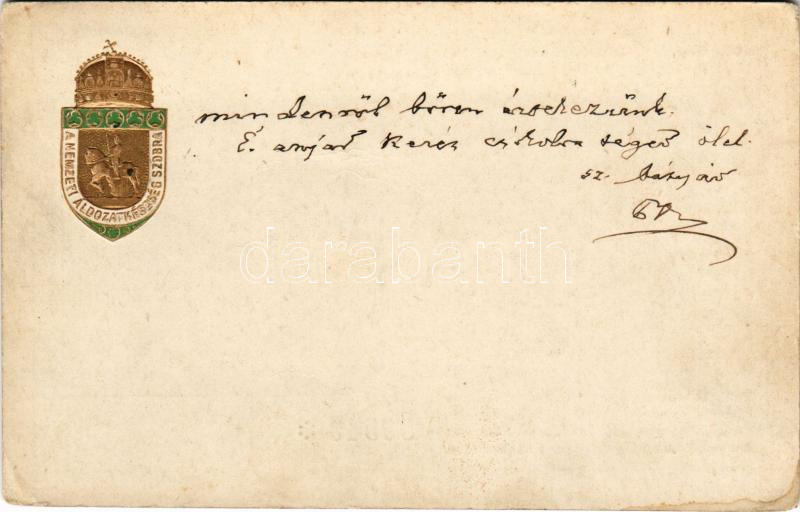 A NEMZETI ÁLDOZATKÉSZSÉG SZOBRA
mindenről bőven
É. anyád kezét csókolva téged ölel
sz. bátyád
darabanth